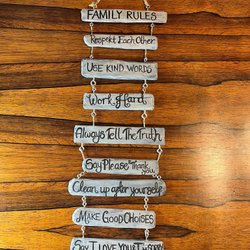 FAMILY RULES
Respekt Each Other
USE KIND WORDS
Work Hard
Always Tell The Truth
Say Please Thank
you
Clean up after yourself
MAKE GOOD CHOISES
SAY I LOVE YOU